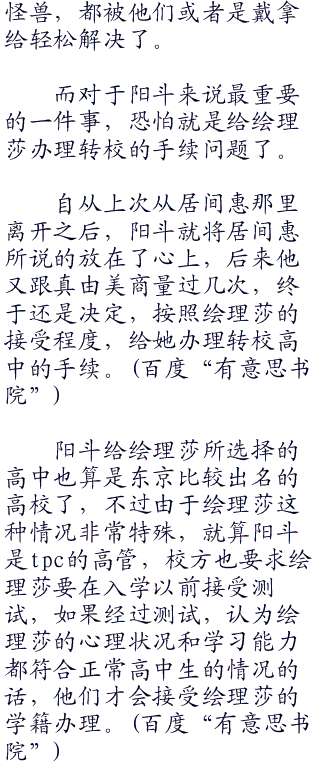 怪兽，都被他们或者是戴拿
给轻松解决了。
而对于阳斗来说最重要
的一件事，恐怕就是给绘理
莎办理转校的手续问题了。
自从上次从居间惠那里
离开之后，阳斗就将居间惠
所说的放在了心上，后来他
又跟真由美商量过几次，终
于还是决定，按照绘理莎的
接受程度，给她办理转校高
中的手续。(百度“有意思书
院”)
阳斗给绘理莎所选择的
高中也算是东京比较出名的
高校了，不过由于绘理莎这
种情况非常特殊，就算阳斗
是tpc的高管，校方也要求绘
理莎要在入学以前接受测
试，如果经过测试，认为绘
理莎的心理状况和学习能力
都符合正常高中生的情况的
话，他们才会接受绘理莎的
学籍办理。(百度“有意思书
院”)